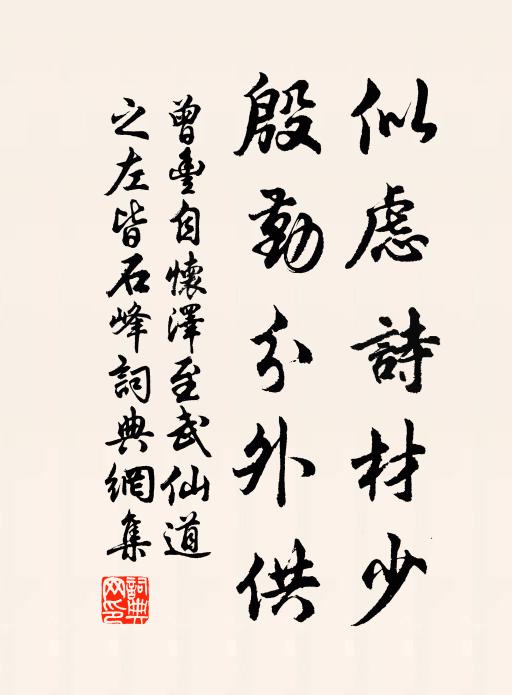 似慮詩材少
殷勤分外供
曾豐自懷澤至武仙道
之左皆石峰詞典網集
詞典網印